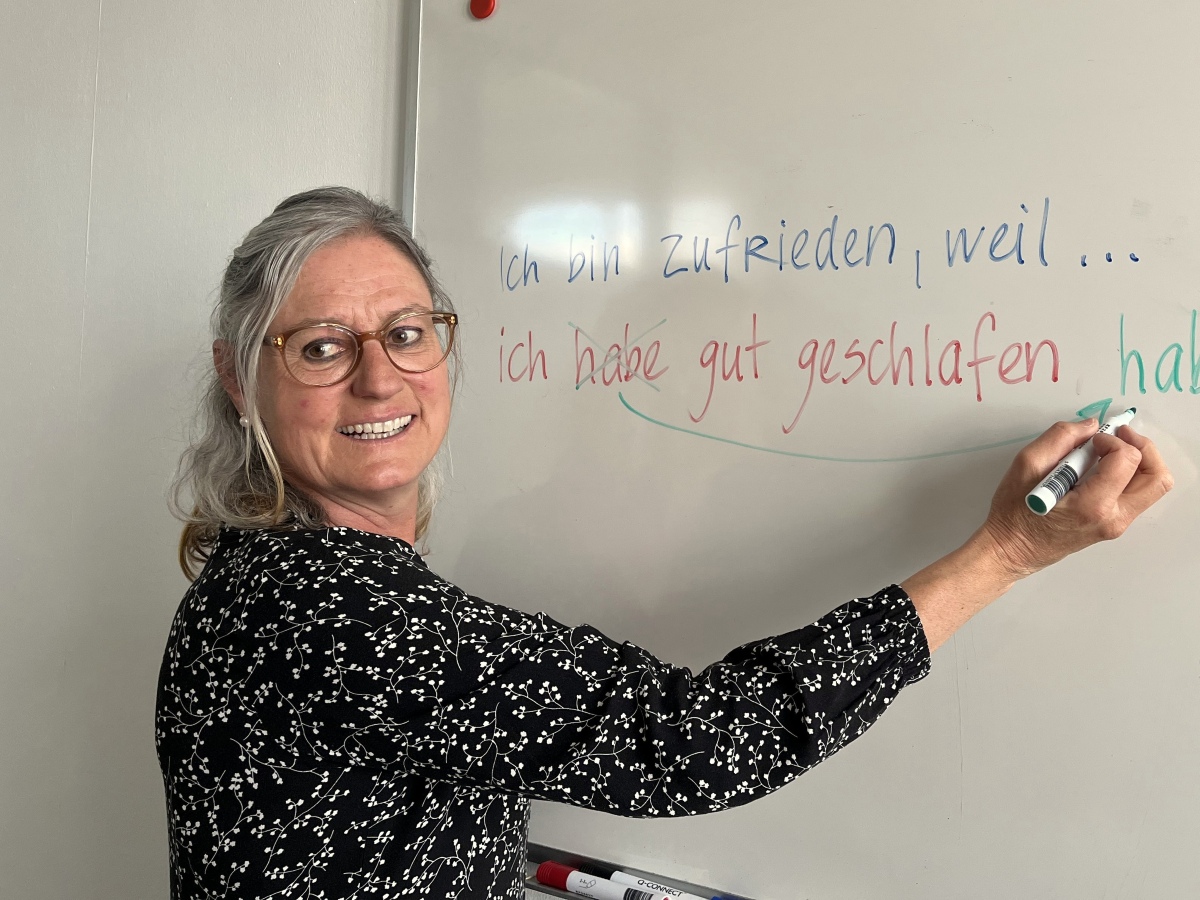 Ich bin zufrieden, weil ...
ich habe gut geschlafen hab
Q-CONNECT